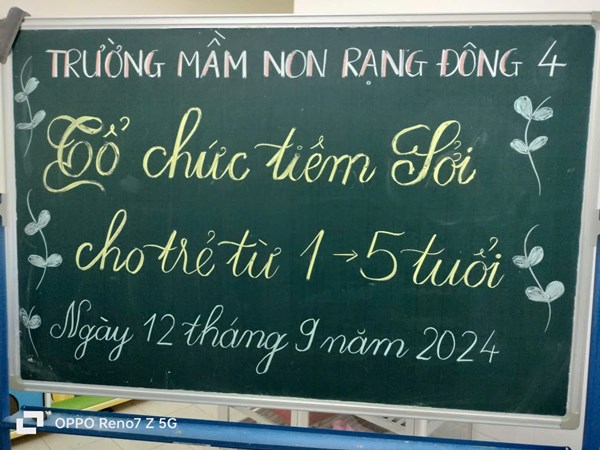 TRƯỜNG MẦM NON RẠNG ĐÔNG 4
Tổ chức tiêm Sởi
cho trẻ từ 1 → 5 tuổi
Ngày 12 tháng 9 năm 2024
OPPO Reno7 Z 5G